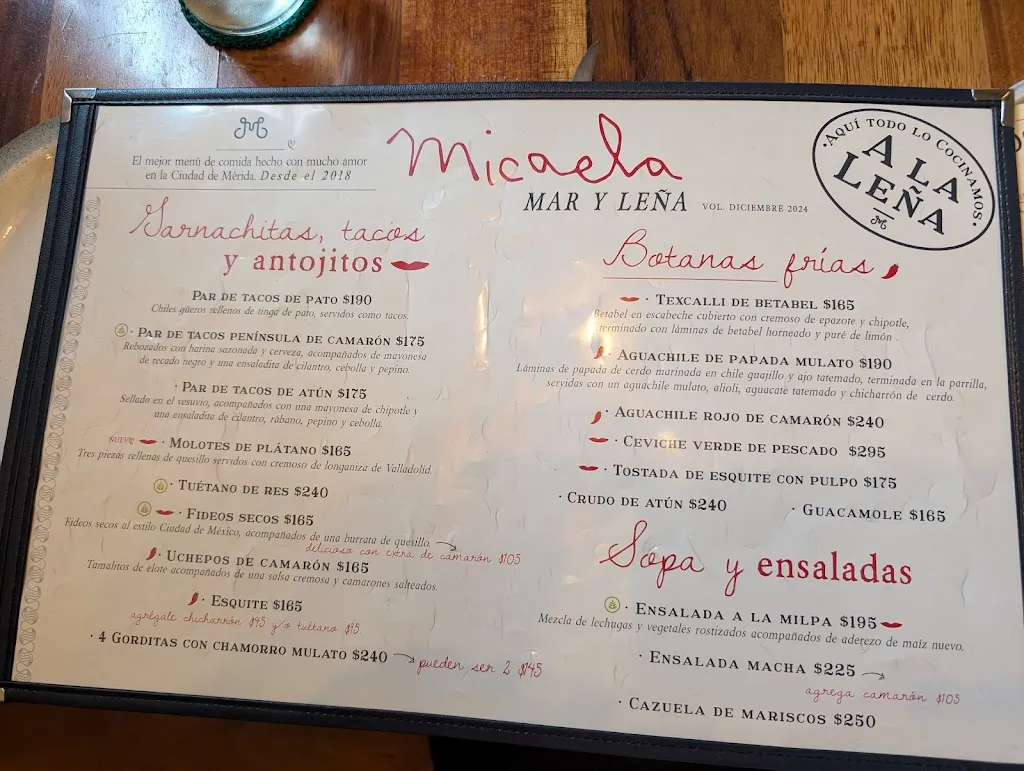 El mejor menú de comida hecho con mucho amor
en la Ciudad de Mérida. Desde el 2018
Micaela
MAR Y LEÑA VOL. DICIEMBRE 2024
·AQUÍ TODO LO COCINAMOS·
A LA
LEÑA
Garnachitas, tacos
y antojitos
PAR DE TACOS DE PATO $190
Chiles güeros rellenos de tinga de pato, servidos como tacos.
· PAR DE TACOS PENÍNSULA DE CAMARÓN $175
Rebozados con harina sazonada y cerveza, acompañados de mayonesa
de recado negro y una ensaladita de cilantro, cebolla y pepino.
· PAR DE TACOS DE ATÚN $175
Sellado en el vesuvio, acompañados con una mayonesa de chipotle y
una ensaladita de cilantro, rábano, pepino y cebolla.
NUEVO · MOLOTES DE PLÁTANO $165
Tres piezas rellenas de quesillo servidos con cremoso de longaniza de Valladolid.
· TUÉTANO DE RES $240
· FIDEOS SECOS $165
Fideos secos al estilo Ciudad de México, acompañados de una burrata de quesillo.
delicioso con extra de camarón $105
· UCHEPOS DE CAMARÓN $165
Tamalitos de elote acompañados de una salsa cremosa y camarones salteados.
· ESQUITE $165
agrégale chicharrón $45 y/o tuétano $95.
· 4 GORDITAS CON CHAMORRO MULATO $240
pueden ser 2 $145
Botanas frías
· TEXCALLI DE BETABEL $165
Betabel en escabeche cubierto con cremoso de epazote y chipotle,
terminado con láminas de betabel horneado y puré de limón .
· AGUACHILE DE PAPADA MULATO $190
Láminas de papada de cerdo marinada en chile guajillo y ajo tatemado, terminada en la parrilla,
servidas con un aguachile mulato, alioli, aguacate tatemado y chicharrón de cerdo.
· AGUACHILE ROJO DE CAMARÓN $240
· CEVICHE VERDE DE PESCADO $295
· TOSTADA DE ESQUITE CON PULPO $175
· CRUDO DE ATÚN $240
· GUACAMOLE $165
Sopa y ensaladas
· ENSALADA A LA MILPA $195
Mezcla de lechugas y vegetales rostizados acompañados de aderezo de maíz nuevo.
· ENSALADA MACHA $225
agrega camarón $105
· CAZUELA DE MARISCOS $250